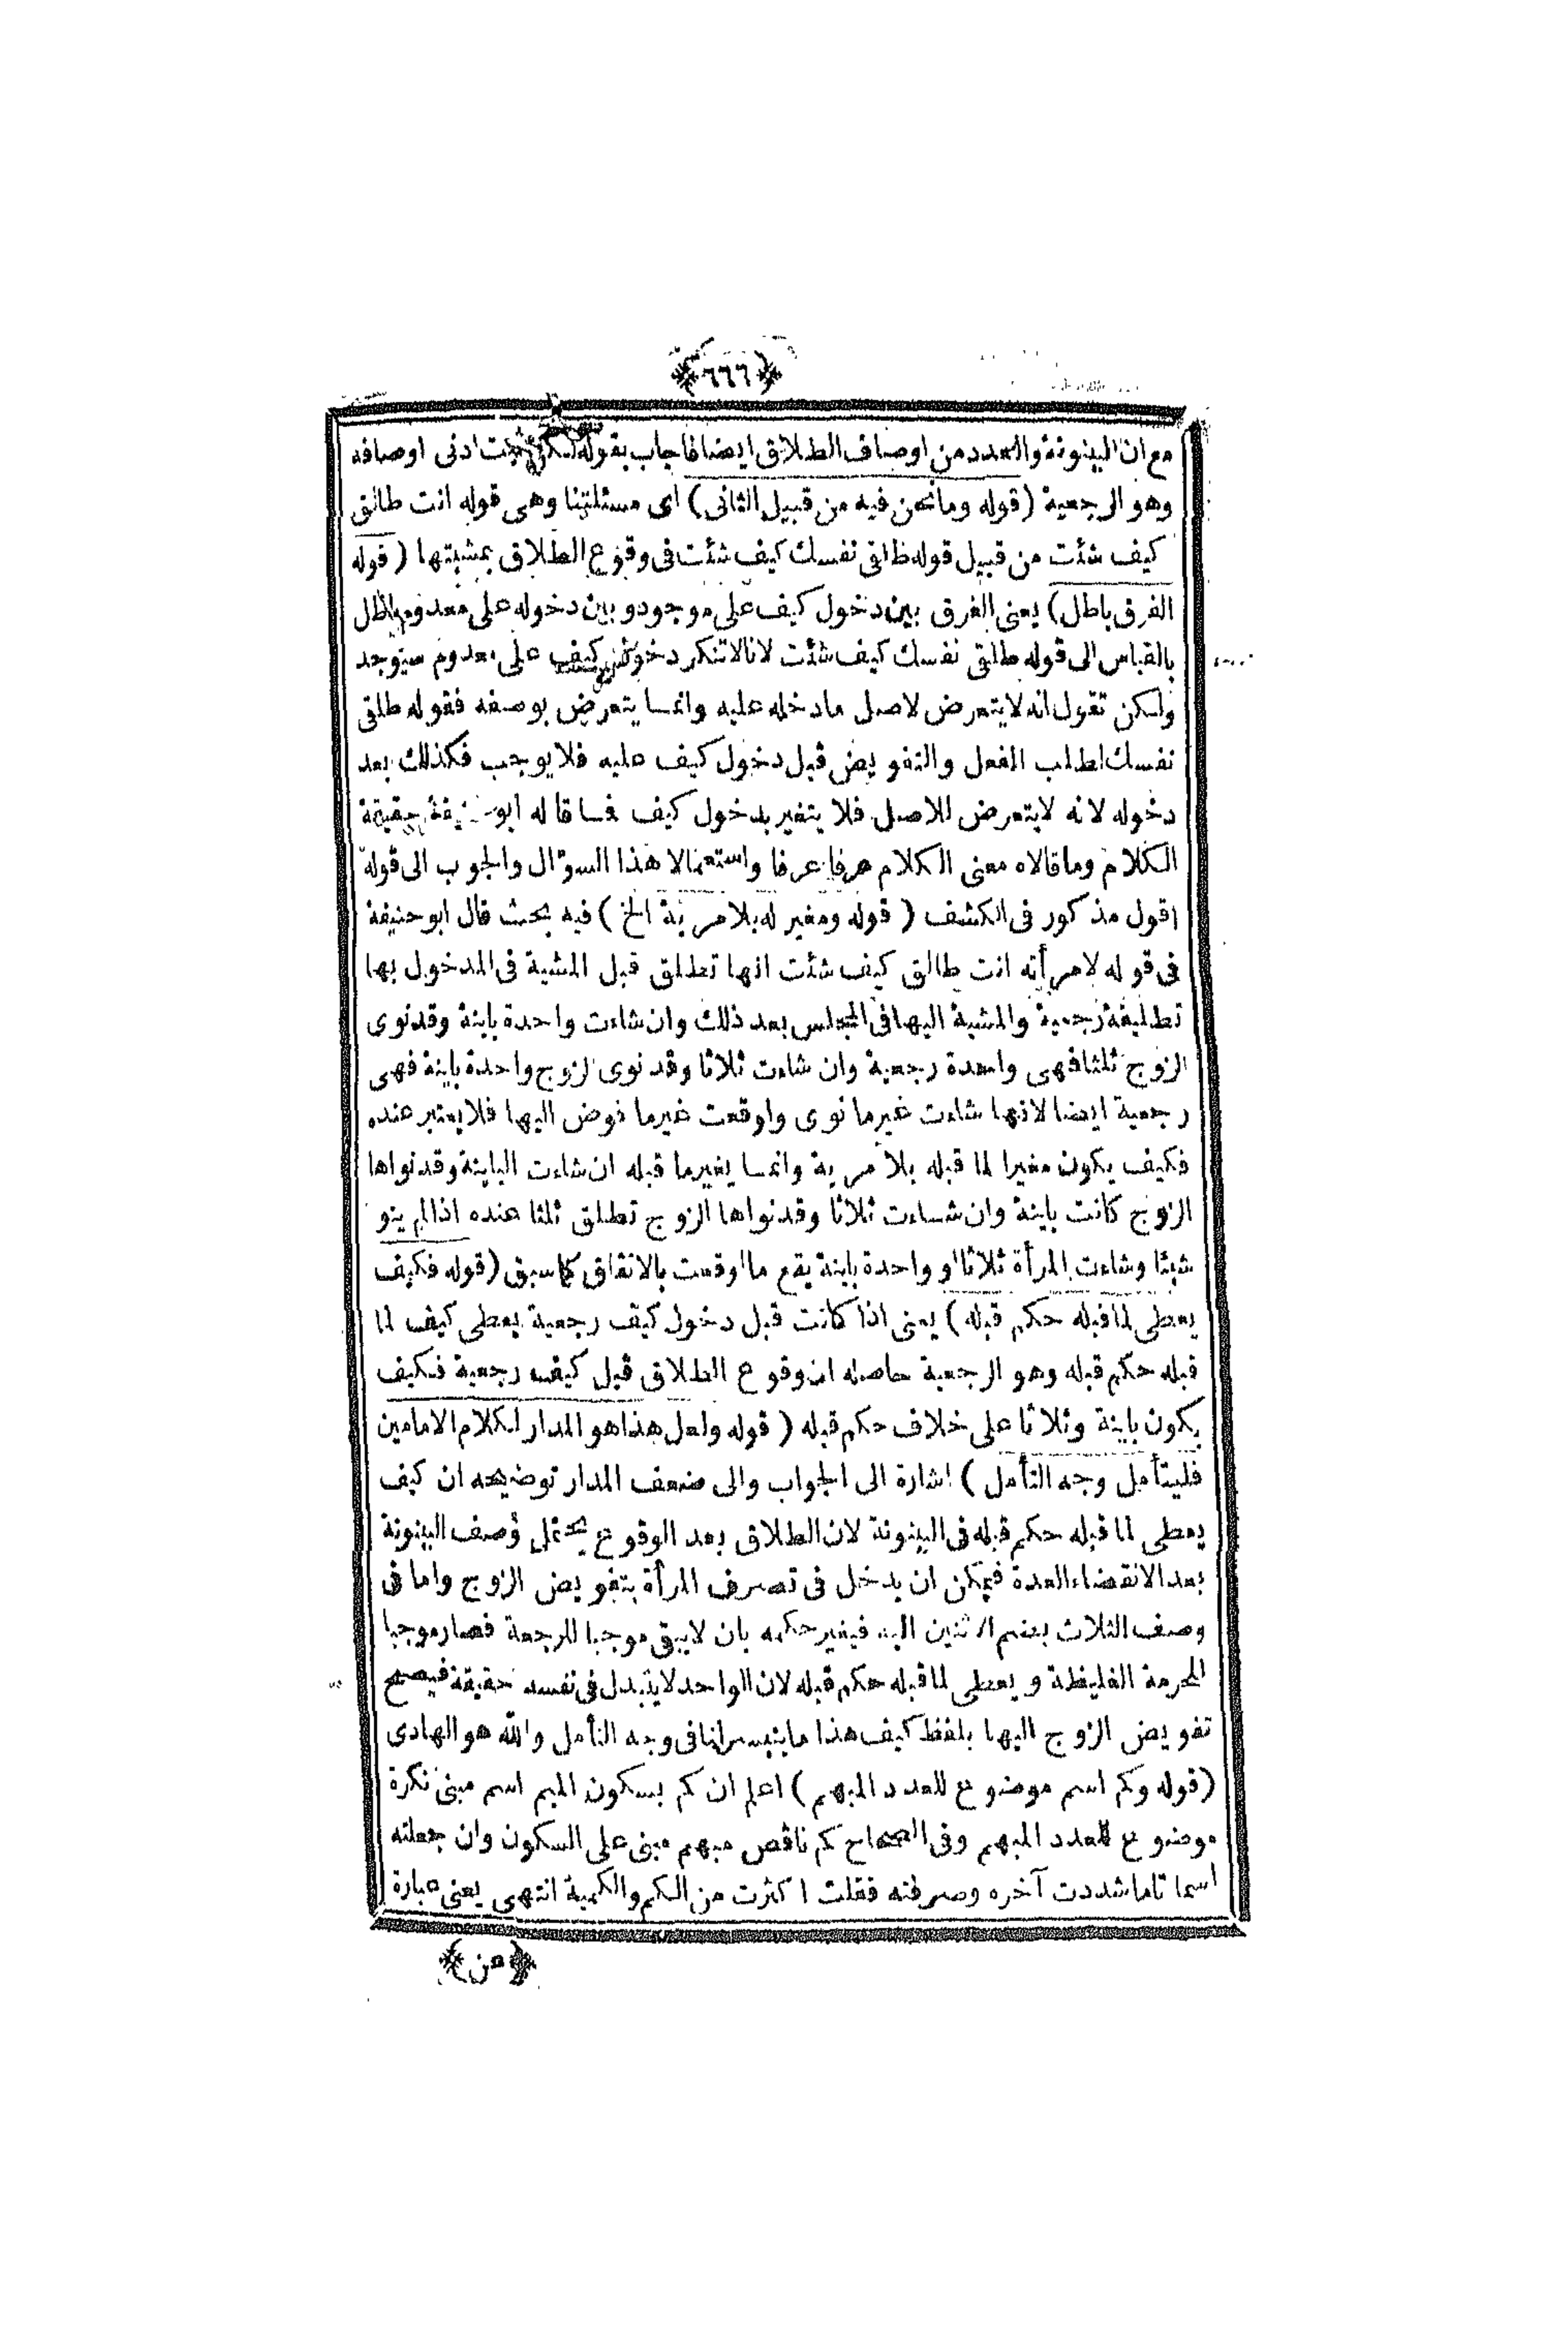 ﴿٦٦٦﴾
مع ان البينونة والعدد من اوصاف الطلاق ايضا فاجاب بقوله لكن يثبت ادنى اوصافه
وهو الرجعية (قوله وما نحن فيه من قبيل الثانى) اى مسئلتنا وهى قوله انت طالق
كيف شئت من قبيل قوله طلقى نفسك كيف شئت فى وقوع الطلاق بمشيتها (قوله
الفرق باطل) يعنى الفرق بين دخول كيف على موجود و بين دخوله على معدوم باطل
بالقياس الى قوله طلقى نفسك كيف شئت لانا لا ننكر دخول كيف على معدوم سيوجد
ولكن نقول انه لا يتعرض لاصل ما دخله عليه وانما يتعرض بوصفه فقوله طلقى
نفسك لطلب الفعل والتفويض قبل دخول كيف عليه فلا يوجب فكذلك بعد
دخوله لانه لا يتعرض للاصل فلا يتغير بدخول كيف فما قاله ابو حنيفة حقيقة
الكلام وما قالاه معنى الكلام عرفا واستعمالا هذا السؤال والجوب الى قوله
اقول مذكور فى الكشف (قوله ومغير له بلا مرية الخ) فيه بحث قال ابو حنيفة
فى قوله لامرأته انت طالق كيف شئت انها تطلق قبل المشية فى المدخول بها
تطليقة رجعية والمشية اليها فى المجلس بعد ذلك وان شاءت واحدة باينة وقد نوى
الزوج ثلثا فهى واحدة رجعية وان شاءت ثلاثا وقد نوى الزوج واحدة باينة فهى
رجعية ايضا لانها شاءت غير ما نوى واوقعت غير ما فوض اليها فلا يعتبر عنده
فكيف يكون مغيرا لما قبله بلا مرية وانما يغير ما قبله ان شاءت الباينة وقد نواها
الزوج كانت باينة وان شاءت ثلاثا وقد نواها الزوج تطلق ثلثا عنده اذا لم ينو
شيئا وشاءت المرأة ثلاثا او واحدة باينة يقع ما اوقعت بالاتفاق كما سبق (قوله فكيف
يعطى لما قبله حكم قبله) يعنى اذا كانت قبل دخول كيف رجعية يعطى كيف لما
قبله حكم قبله وهو الرجعية حاصله ان وقوع الطلاق قبل كيف رجعية فكيف
يكون باينة وثلاثا على خلاف حكم قبله (قوله ولعل هذا هو المدار لكلام الامامين
فليتأمل وجه التأمل) اشارة الى الجواب والى ضعف المدار توضيحه ان كيف
يعطى لما قبله حكم قبله فى البينونة لان الطلاق بعد الوقوع يحتمل وصف البينونة
بعد الانقضاء العدة فيمكن ان يدخل فى تصرف المرأة بتفويض الزوج واما فى
وصف الثلاث بضم الاثنين اليه فيغير حكمه بان لا يبقى موجبا للرجعة فصار موجبا
للحرمة الغليظة و يعطى لما قبله حكم قبله لان الواحد لا يتبدل فى نفسه حقيقة فيصح
تفويض الزوج اليها بلفظ كيف هذا ما يتيسر لنا فى وجه التأمل والله هو الهادى
(قوله وكم اسم موضوع للعدد المبهم) اعلم ان كم بسكون الميم اسم مبنى نكرة
موضوع للعدد المبهم وفى الصحاح كم ناقص مبهم مبنى على السكون وان جعلته
اسما تاما شددت آخره وصرفته فقلت اكثرت من الكم والكمية انتهى يعنى عبارة
﴿من﴾